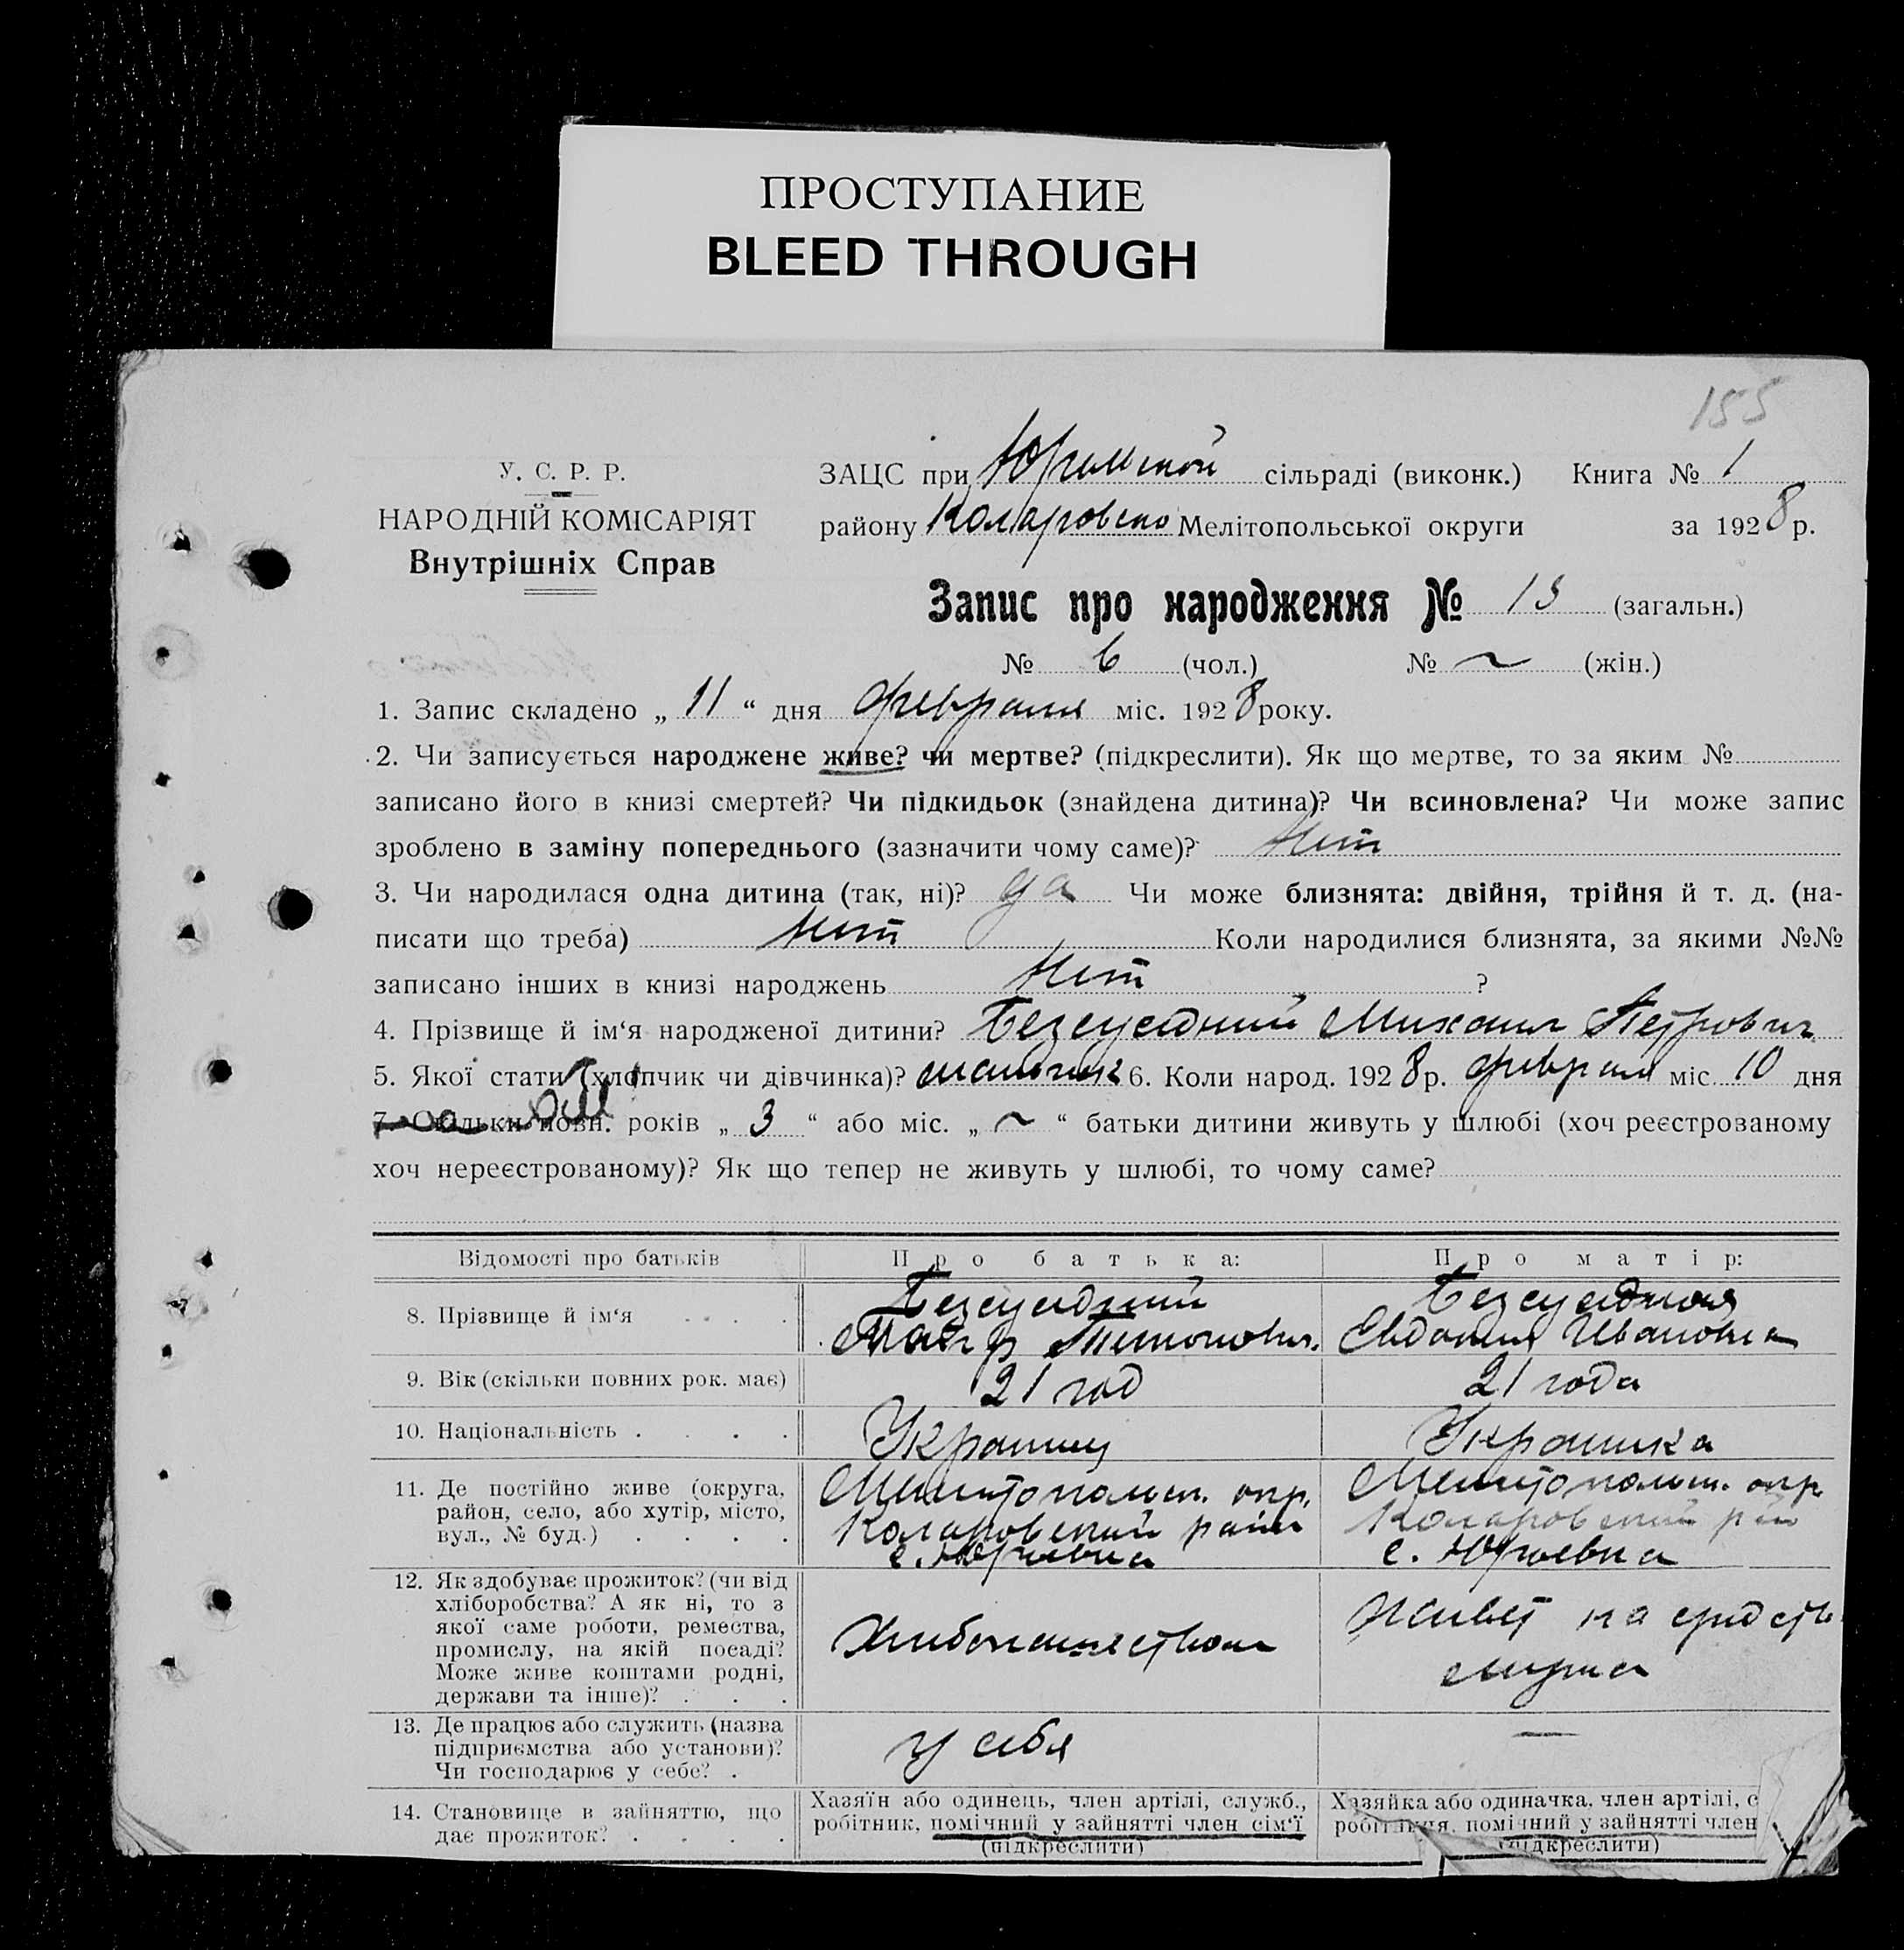 ПРОСТУПАНИЕ
BLEED THROUGH
155
У. С. Р. Р.
НАРОДНІЙ КОМІСАРІЯТ
Внутрішніх Справ
ЗАЦС при сільраді (виконк.) Книга № 1
району Коларовско Мелітопольської округи за 1928 р.
Запис про народження № 13 (загальн.)
№ 6 (чол.) № ~ (жін.)
1. Запис складено „ 11 “ дня февраля міс. 1928 року.
2. Чи записується народжене живе? чи мертве? (підкреслити). Як що мертве, то за яким №
записано його в книзі смертей? Чи підкидьок (знайдена дитина)? Чи всиновлена? Чи може запис
зроблено в заміну попереднього (зазначити чому саме)? Нет
3. Чи народилася одна дитина (так, ні)? да Чи може близнята: двійня, трійня й т. д. (на-
писати що треба) Нет Коли народилися близнята, за якими №№
записано інших в книзі народжень Нет ?
4. Прізвище й ім‘я народженої дитини? Безсуедний Михаил Петрович
5. Якої стати (хлопчик чи дівчинка)? мальчик 6. Коли народ. 1928 р. февраля міс. 10 дня
7. Скільки повн. років „ 3 “ або міс. „ ~ “ батьки дитини живуть у шлюбі (хоч реєстрованому
хоч нереєстрованому)? Як що тепер не живуть у шлюбі, то чому саме?
Відомості про батьків Про батька: Про матір:
8. Прізвище й ім‘я Безсуедний Безсуедная
Евдокия Ивановна
9. Вік (скільки повних рок. має) 21 год 21 года
10. Національність Украинец Украинка
11. Де постійно живе (округа, район, село, або хутір, місто, вул., № буд.) Мелитопольск. окр. Мелитопольск. окр
Коларовский район Коларовский рай
с. Юрьевка с. Юрьевка
12. Як здобуває прожиток? (чи від
хліборобства? А як ні, то з
якої саме роботи, ремества,
промислу, на якій посаді?
Може живе коштами родні,
держави та інше)?
Хлебопашеством
Живет на средств
мужа
13. Де працює або служить (назва
підприємства або установи)?
Чи господарює у себе?
у себя —
14. Становище в зайняттю, що
дає прожиток?
Хазяїн або одинець, член артілі, служб.,
робітник, помічний у зайнятті член сім‘ї
(підкреслити)
Хазяйка або одиначка, член артілі, с
робітниця, помічний у зайнятті член
(підкреслити)